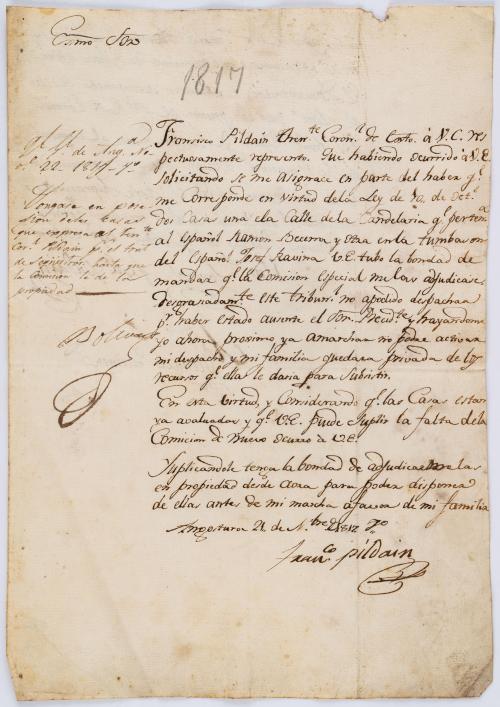 Exmo Sor
1817
Francisco Pildain Then.te Coron.l de Exto. á V.E. res
pectuosamente represento. Que habiendo ocurrido á V.E.
solicitando se me asignace en parte del haber q.e
me Corresponde en virtud dela Ley de 10. de Oct.e
dos Casas una ela Calle de la Candelaria q.e pertenª
al Español Ramon Becerra, y otra en la tumbason
del Español Josef Ravina V.E. tubo la bondad de
mandar q.e la Comision Especial me las adjudicase,
desgrasiadam.te este tribun.l no apodido despachar
p.r haber estado ausente el Sor. Presid.te, y hayandome
yo ahora prosimo ya amarchar no podre activar
mi despacho y mi familia quedara privada de los
recursos q.e ella le daria para subsistir.
En esta virtud, y Considerando q.e las Casas estan
ya avaluadas y q.e V.E. puede suplir la falta dela
Comicion de nuevo ocurro a V.E.
Suplicandole tenga la bondad de adjudicarmelas
en propiedad desde aora para poder disponer
de ellas antes de mi marcha afavor de mi familia
Angostura 21 de N.bre de 1817 7.o
Fran.co Pildain
Q.l G.l de Ang.ª No
v.e 22. 1817. 7.o
Pongase en pose
sion delas casas
que expresa al ten.te
Cor.l Pildain p.r el trib.l
de Sequestros, hasta que
la Comision le de la
propiedad
Bolivar